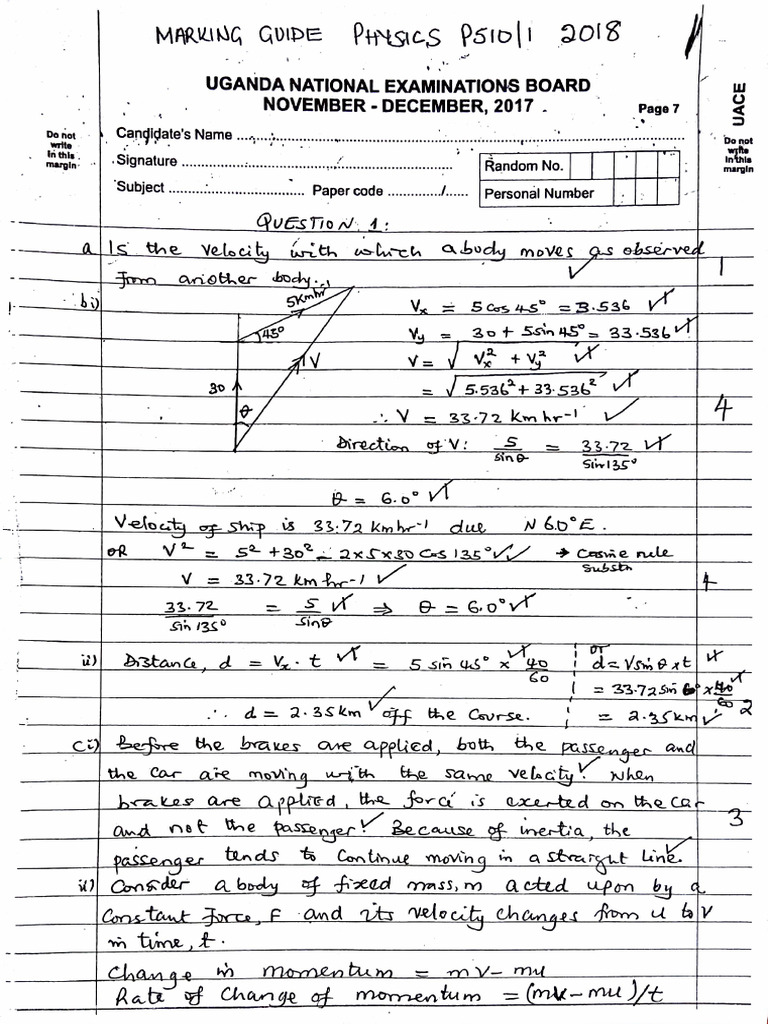 MARKING GUIDE PHYSICS P510/1 2018
UGANDA NATIONAL EXAMINATIONS BOARD
NOVEMBER - DECEMBER, 2017
Page 7
UACE
Do not write in this margin
Candidate's Name
Do not write in this margin
Signature
Random No.
Subject Paper code /
Personal Number
QUESTION 1:
a Is the velocity with which a body moves as observed
from another body. ✓ 1
bi) 5Kmhr 45° V 30 θ
Vx = 5 cos 45° = 3.536 ✓
Vy = 30 + 5 sin 45° = 33.536 ✓
V = √ Vx² + Vy² ✓
= √ 5.536² + 33.536² ✓
∴ V = 33.72 Km hr-1 ✓ 4
Direction of V: 5/sinθ = 33.72/sin135° ✓
θ = 6.0° ✓
Velocity of ship is 33.72 kmhr-1 due N 6.0° E.
OR V² = 5² + 30² - 2x5x30 Cos 135° ✓✓ → Cosine rule
Substn
V = 33.72 km hr-1 ✓ 4
33.72/sin 135° = 5/sinθ ✓ ⇒ θ = 6.0° ✓
ii) Distance, d = Vx · t ✓ = 5 sin 45° x 40/60 ✓
or d = Vsinθ x t ✓
= 33.72 sin 6° x 40/60 ✓ 2
∴ d = 2.35km ✓ off the Course.
= 2.35km ✓
ci) Before the brakes are applied, both the passenger and
the car are moving with the same velocity. ✓ When
brakes are applied, the force is exerted on the car
and not the passenger. ✓ Because of inertia, the 3
passenger tends to continue moving in a straight line. ✓
ii) Consider a body of fixed mass, m acted upon by a
constant force, F and its velocity changes from u to v
in time, t.
Change in momentum = mv - mu
Rate of change of momentum = (mv - mu)/t